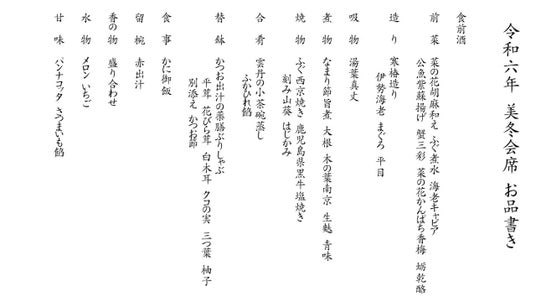 令和六年 美冬会席 お品書き
食前酒
前菜 菜の花胡麻和え ふぐ煮氷 海老キャビア
公魚紫蘇揚げ 蟹三彩 菜の花かんぱち香梅 蛎乾酪
造り 寒椿造り
伊勢海老 まぐろ 平目
吸物 湯葉真丈
煮物 なまり節旨煮 大根 木の葉南京 生麩 青味
焼物 ふぐ西京焼き 鹿児島県黒牛塩焼き
刻み山葵 はじかみ
合肴 雲丹の小茶碗蒸し
ふかひれ餡
替鉢 かつお出汁の薬膳ぶりしゃぶ
平茸 花びら茸 白木耳 クコの実 三つ葉 柚子
別添え かつお節
食事 かに御飯
留椀 赤出汁
香の物 盛り合わせ
水物 メロン いちご
甘味 パンナコッタ さつまいも餡